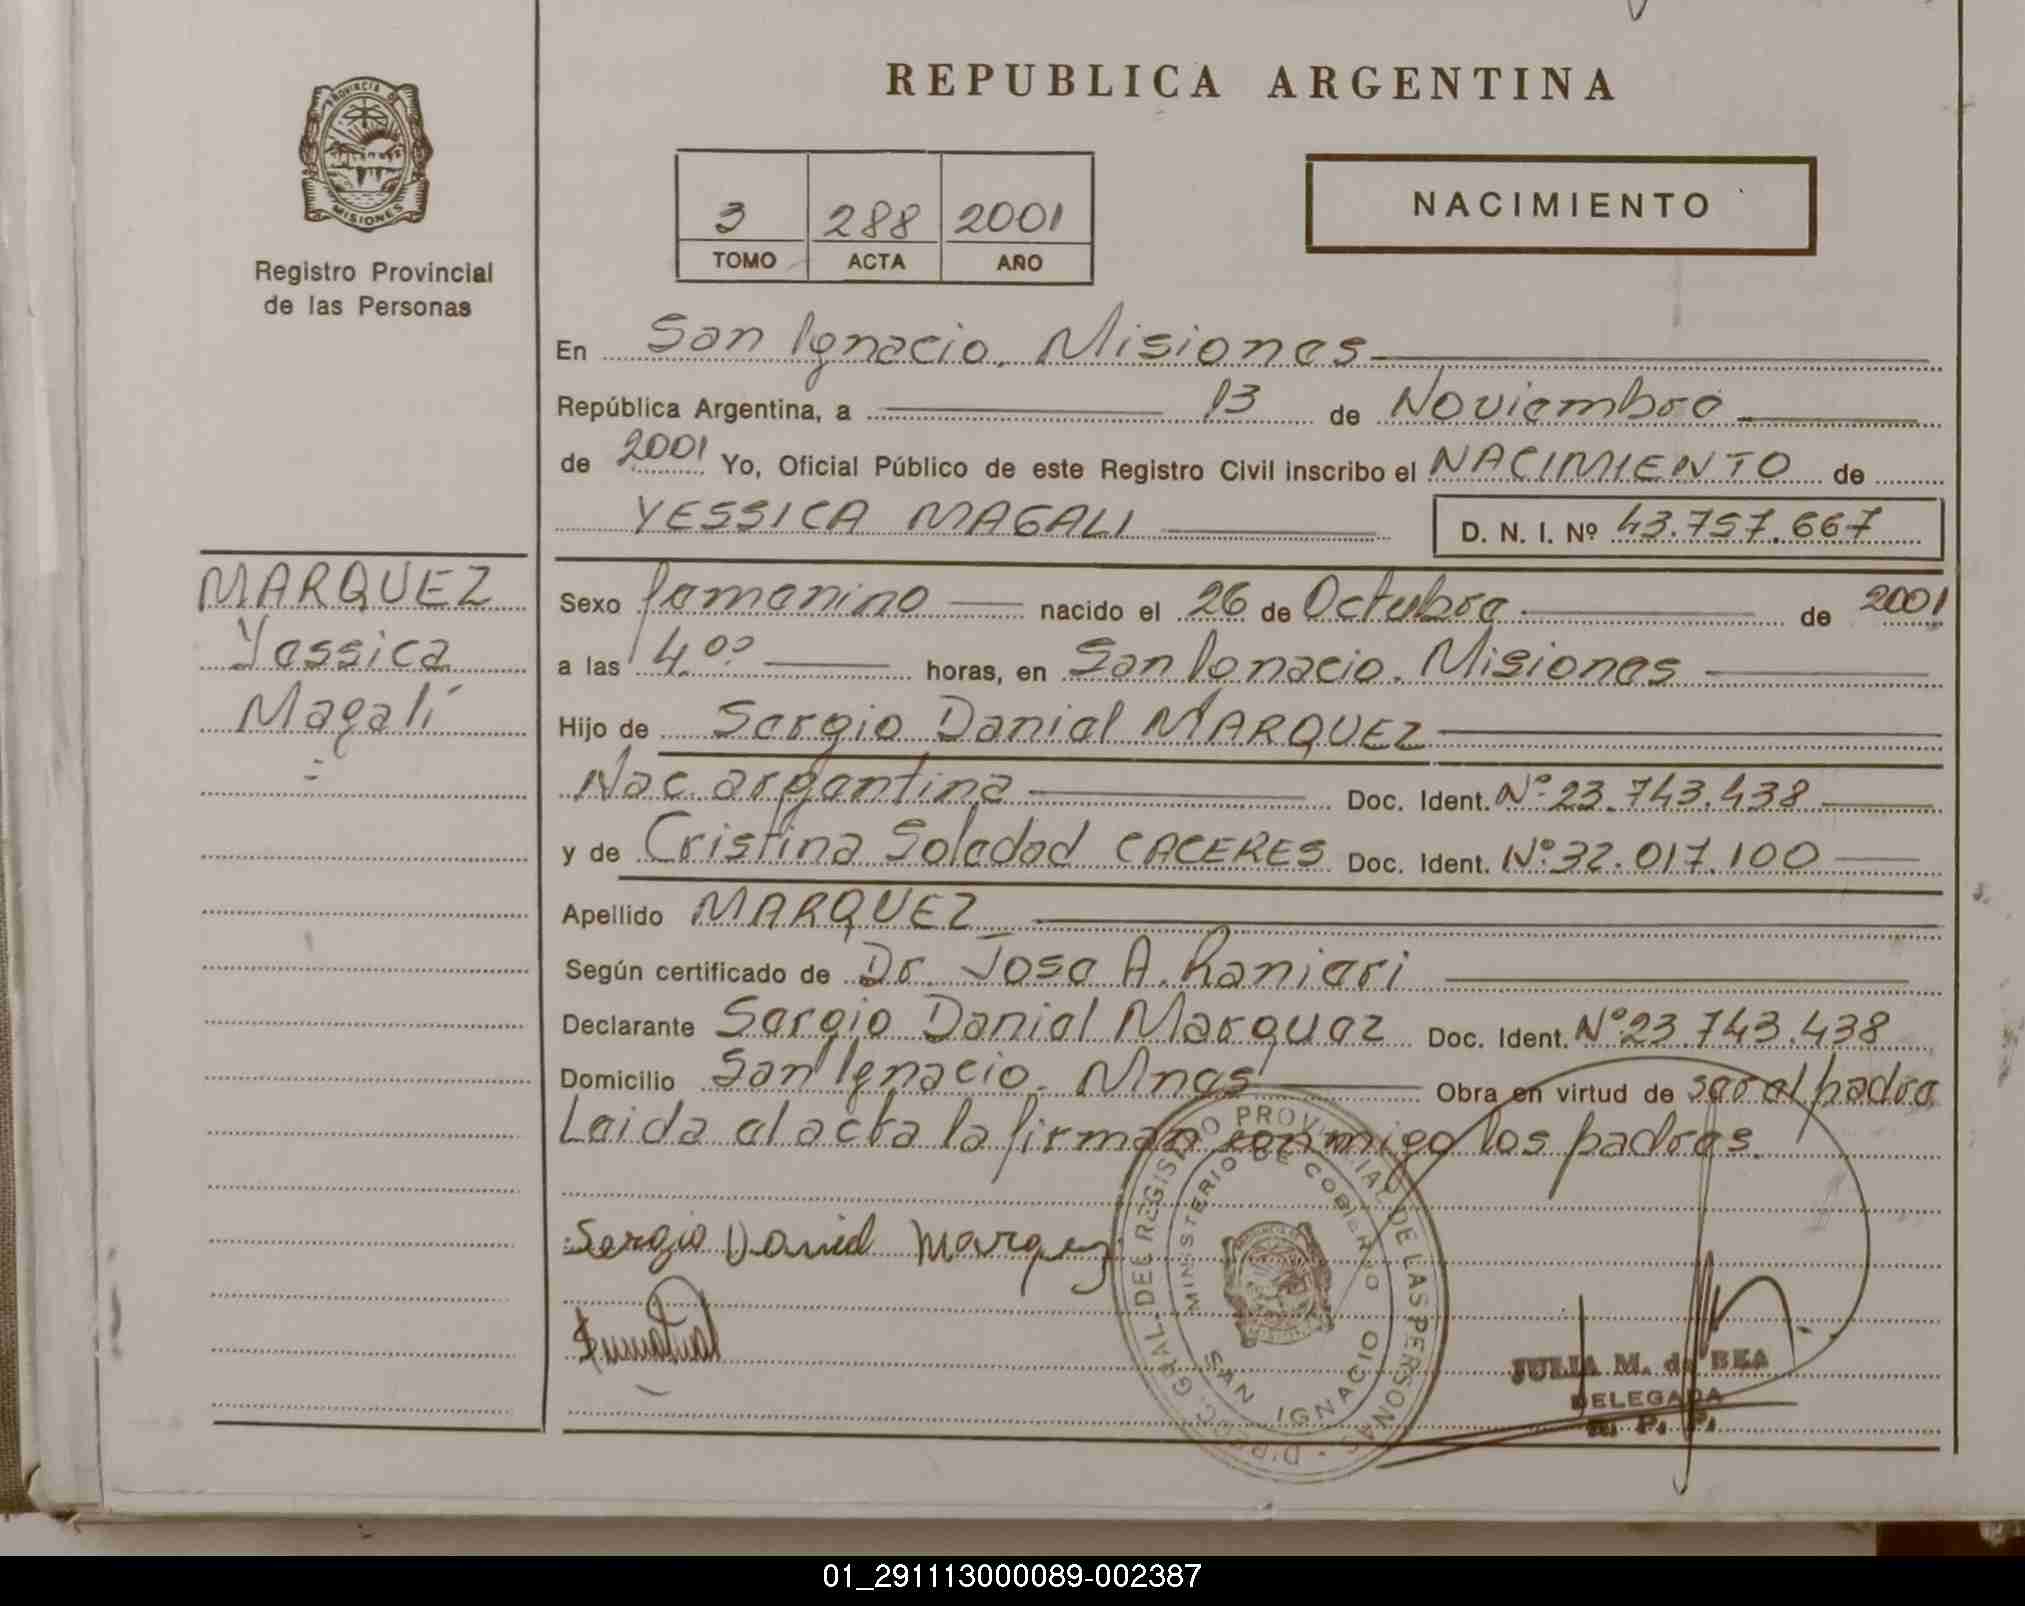 REPUBLICA ARGENTINA
PROVINCIA DE
MISIONES
Registro Provincial
de las Personas
3 288 2001
TOMO ACTA AÑO
NACIMIENTO
En San Ignacio. Misiones
República Argentina, a 13 de Noviembre
de 2001 Yo, Oficial Público de este Registro Civil inscribo el NACIMIENTO de
YESSICA MAGALI D. N. I. Nº 43.757.667
MARQUEZ
Yessica
Magalí
Sexo femenino nacido el 26 de Octubre de 2001
a las 4.00 horas, en San Ignacio. Misiones
Hijo de Sergio Daniel MARQUEZ
Nac. argentina Doc. Ident. Nº 23.743.438
y de Cristina Soledad CACERES Doc. Ident. Nº 32.017.100
Apellido MARQUEZ
Según certificado de Dr. Jose A. Ranieri
Declarante Sergio Daniel Marquez Doc. Ident. Nº 23.743.438
Domicilio San Ignacio. Mnes Obra en virtud de ser el padre
Leida el acta la firman conmigo los padres.
Sergio Daniel Marquez
DIREC. GRAL. DEL REGISTRO PROVINCIAL DE LAS PERSONAS
MINISTERIO DE GOBIERNO
SAN IGNACIO
JULIA M. de BEA
DELEGADA
R. P. P.
01_291113000089-002387